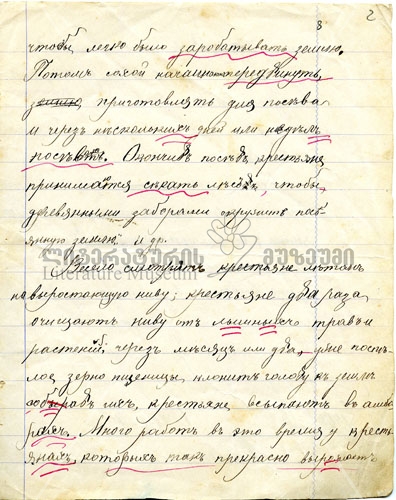 8 2
чтобы легко было заработывать землю.
Потомъ сохой передвинуть,
приготовлять для посѣва
и черезъ нѣсколькихъ дней или недѣль
посѣвъ. Окончивъ посѣвъ, крестьяне
принимаются сѣкать лѣсъ, чтобы
деревянными заборами окружить посѣ-
янную землю и др.
ლიტერატურის მუზეუმი
Literature Museum
Весело смотрѣть крестьяне лѣтомъ
на выростающую ниву; крестьяне два раза
очищаютъ ниву отъ травъ и
растеній, черезъ мѣсяцъ или два, уже поспѣ-
лое зерно пшеницы клонитъ голову къ землѣ
ихъ, крестьяне всыпаютъ въ амба-
рахъ. Много работъ въ это время у кресть-
янахъ, которыхъ такъ прекрасно